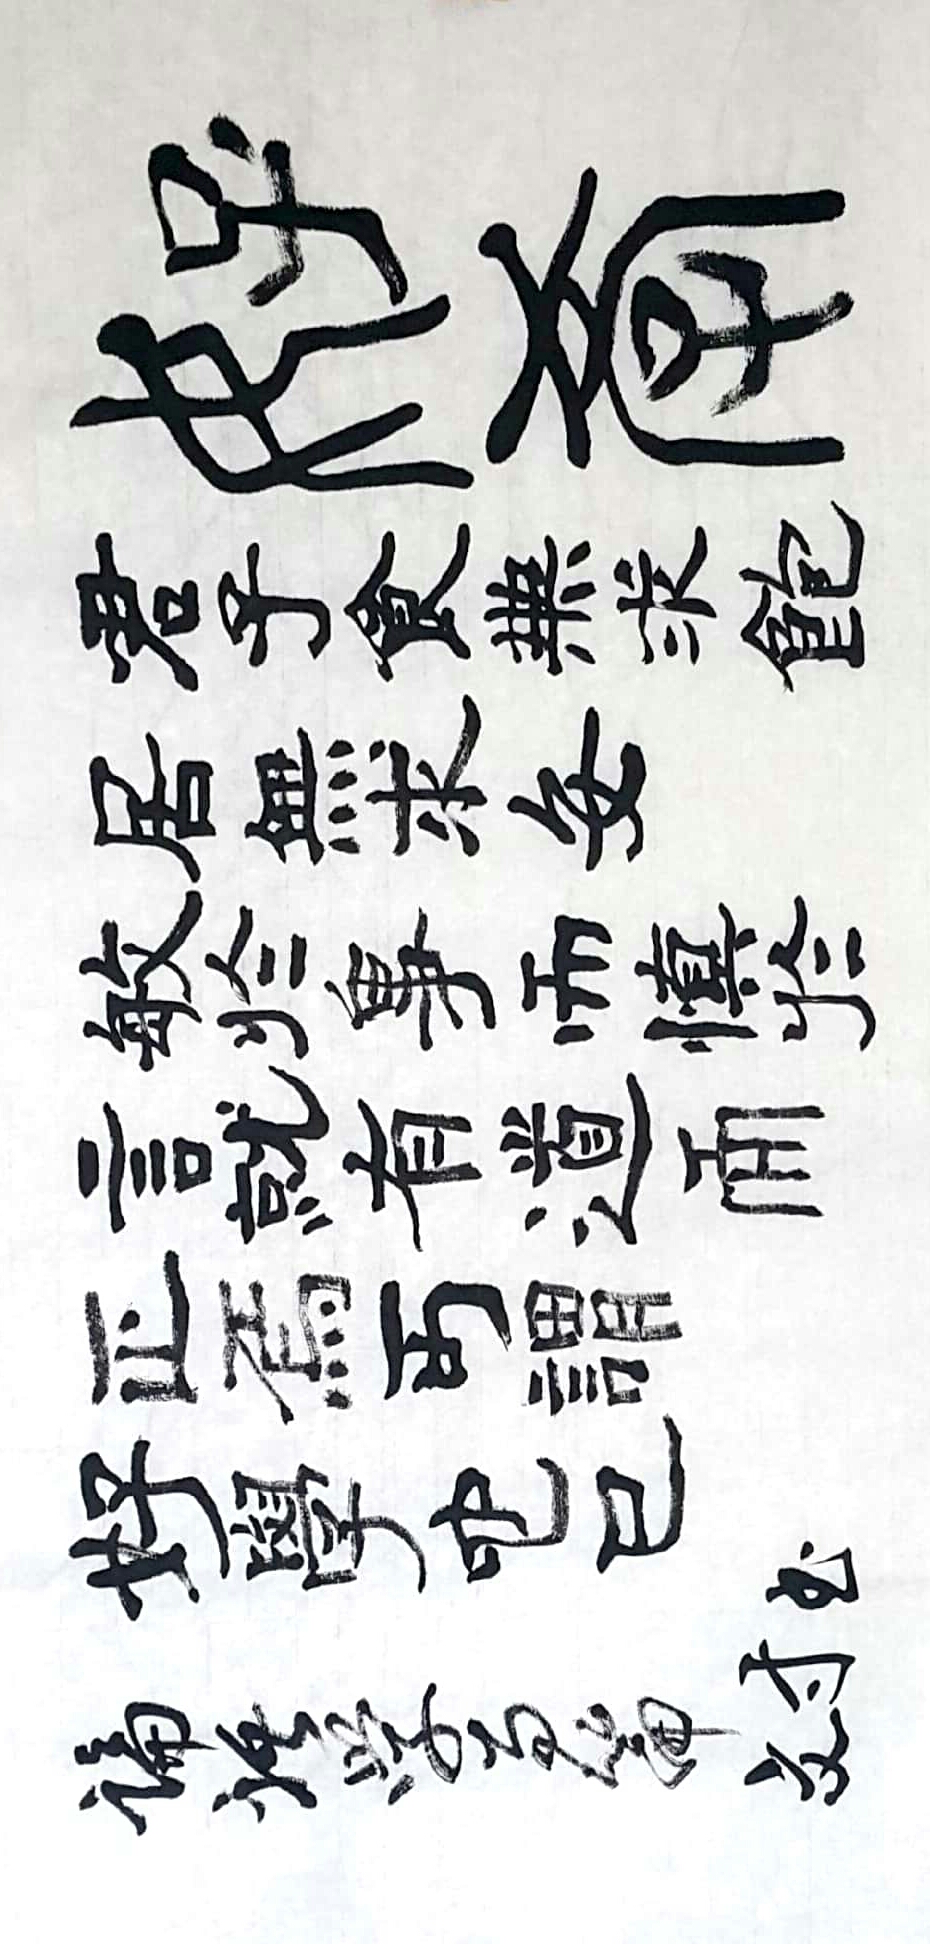 好學
君子食無求飽
居無求安
敏於事而慎於
言就有道而
正焉可謂
好學也已
論語學而